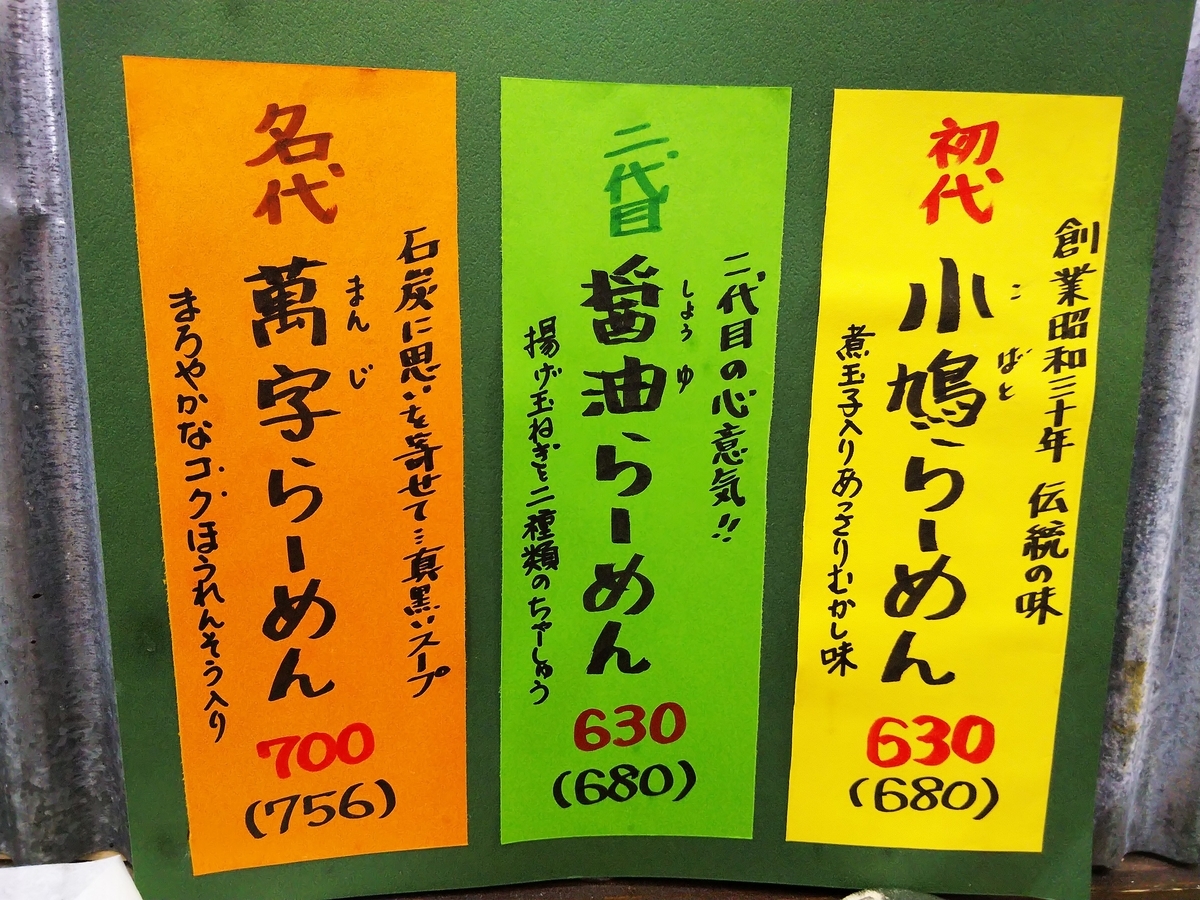 初代
創業昭和三十年 伝統の味
こばと
小鳩らーめん
煮玉子入りあっさりむかし味
630
(680)
二代目
二代目の心意気!!
しょうゆ
醤油らーめん
揚げ玉ねぎと二種類のちゃーしゅう
630
(680)
名代
石炭に思いを寄せて…真黒いスープ
まんじ
萬字らーめん
まろやかなコクほうれんそう入り
700
(756)